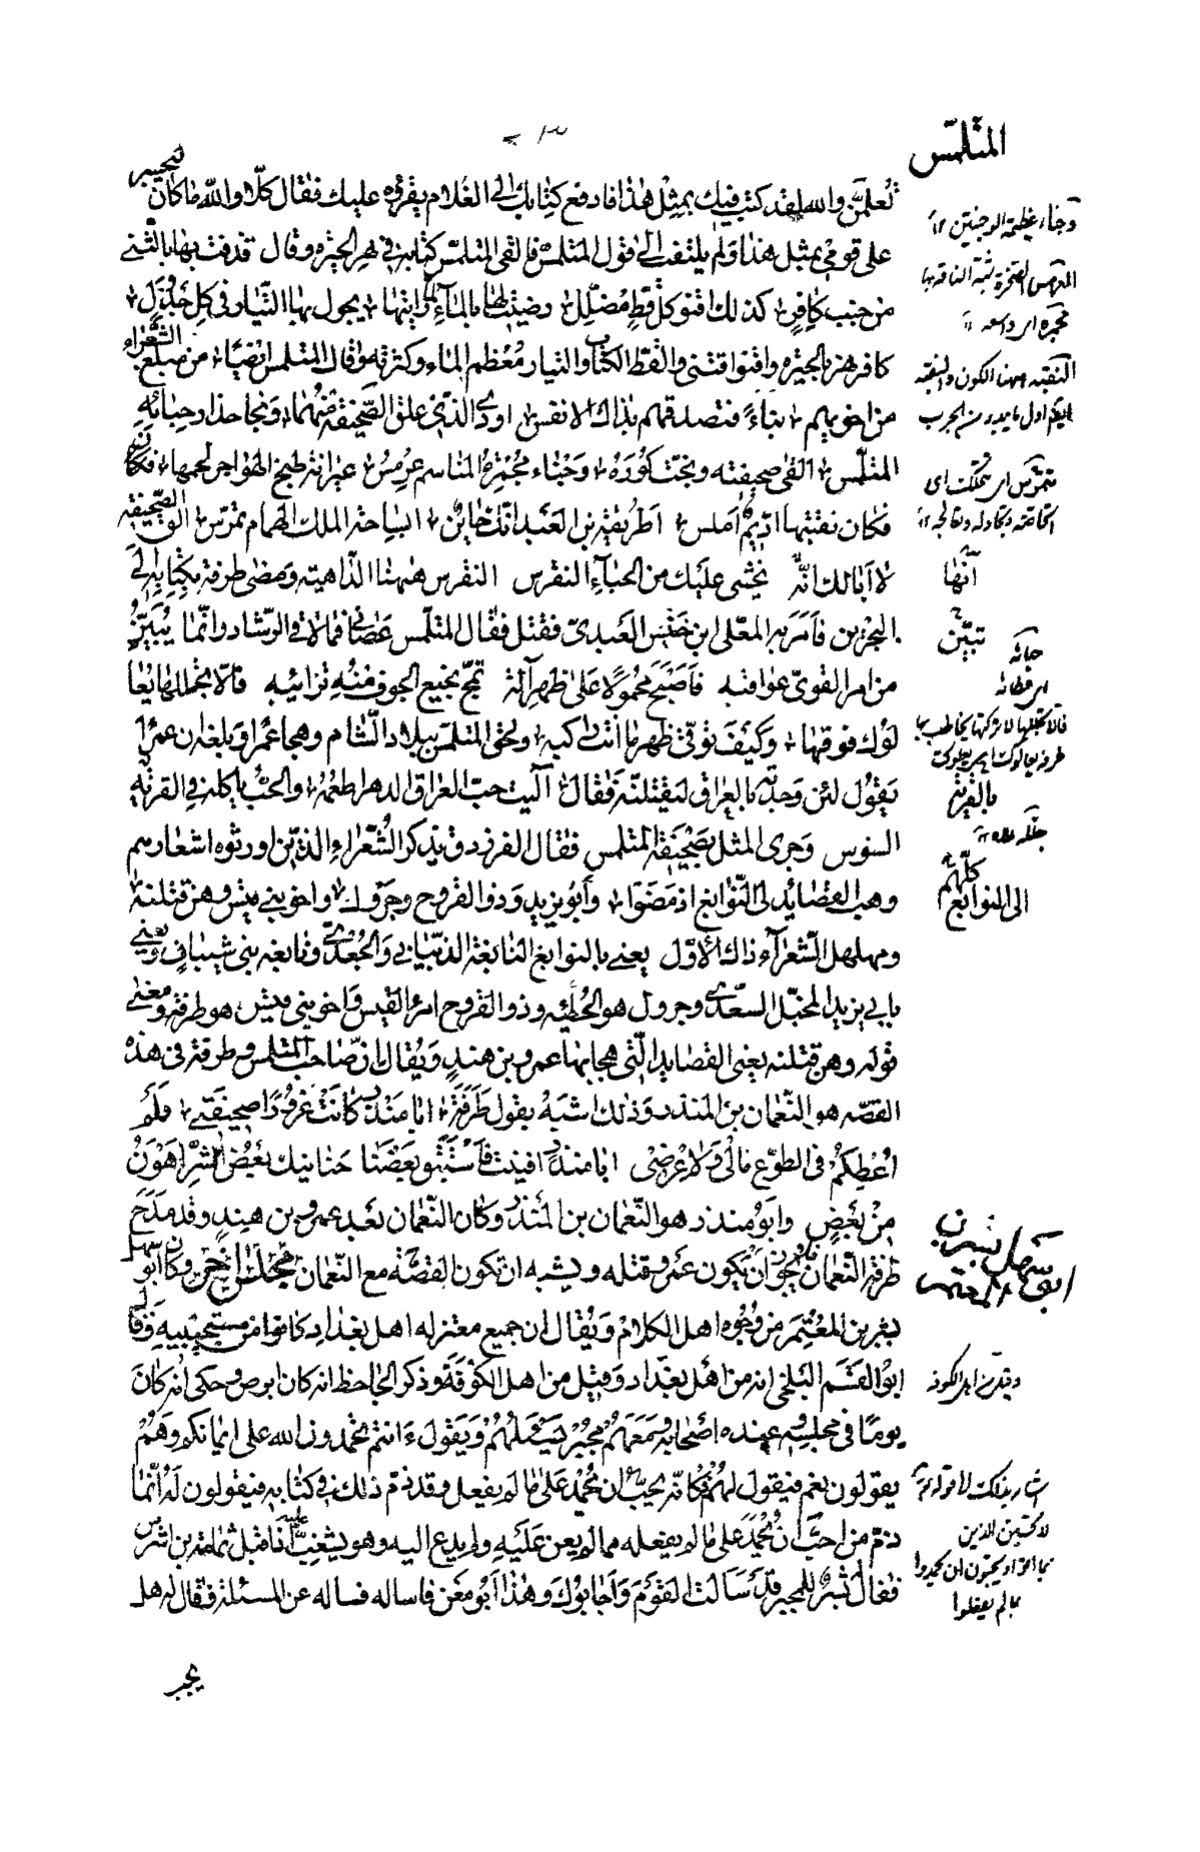 المتلمّس
تعلمنّ والله لقد كتب فيك بمثل هذا فادفع كتابك الى الغلام يقرؤه عليك فقال كلّا والله ما كان ليجسر
على قومي بمثل هذا ولم يلتفت الى قول المتلمّس فالقى المتلمّس كتابه في نهر الحيره وقال قذفت بها بالثنى
من جنب كافر كذلك اقنو كل قطّ مضلّل رضيت لها بالمآء لما رايتها يجول بها التيار في كل جدول
كافر نهر بالحيره واقنوا اقتنى والقط الكتاب والتيار معظم الماء وكثرته وقال المتلمس ايضا من مبلغ الشعرآء
من اخويهم نباءً فتصدقهم بذاك الانفس اودى الذي علق الصحيفة منهما ونجا حذار حبائه
المتلمّس القى صحيفته ونجت كوره وجناء مجمرة المناسم عرمس عيرانة طبخ الهواجر لحمها فكأن
فكان نقبتها اديم املس اطريفة بن العبد انك حاين ابساحة الملك الهمام تمرّس الق الصّحيفة
لا ابا لك انّه يخشى عليك من الحباء النقرس النقرس ههنا الداهيته ومضى طرفة بكتابه الى
البحرين فأمر به المعلّى ابن حنش العبدىّ فقتل فقال المتلمّس عصانى فما لاقى الرشاد وانّما يبيّن
من امر الغوىّ عواقبه فاصبح محمولا على ظهر آلة تمجّ نجيع الجوف منه ترائبه فالّا تجللها يعا
لوك فوقها وكيف توقى ظهر ما انت راكبه ولحق المتلمس ببلاد الشام وهجا عمرا وبلغه ان عمرا
يقول لئن وجدته بالعراق لنقتلنّه فقال آليت حبّ العراق الدهر اطعمه والحبّ ياكله في القريه
السوس وجرى المثل بصحيفة المتلمس فقال الفرزدق يذكر الشعراء الذين اورثوه اشعارهم
وهب القصايد لى النوابغ اذ مضوا وابو يزيد وذو القروح وجرول واخو بني قيس وهن قتلنه
ومهلهل الشعراء ذاك الاوّل يعنى بالنوابغ النابغة الذبيانى والجعدى ونابغه بنى شيبان ويعني
بابي يزيد المخبّل السعدى وجرول هو الحطيئه وذو القروح امرؤ القيس واخو بنى قيس هو طرفة ومعنى
قوله وهن قتلنه يعنى القصايد الّتى هجا بها عمرو بن هند ويقال ان صاحب المتلمس وطرفة في هذه
القصّه هو النعمان بن المنذر وذلك اشبه بقول طرفة ابا منذر كانت غرورا صحيفتي فلم
اعطكم في الطوع مالى ولا عرضى ابا منذر افنيت فاستبق بعضنا حنانيك بعض الشرّ اهون
من بعض وابو منذر هو النعمان بن المنذر وكان النعمان بعد عمرو بن هند وقد مدح
طرفة النعمان فلا يجوز ان يكون عمرو قتله ويشبه ان تكون القصّة مع النعمان مجلس اخر وكان ابو سهل
بشر بن المعتمر من وجوه اهل الكلام ويقال ان جميع معتزله اهل بغداد كانوا من مستجيبيه وقال
ابو القسم البلخي انه من اهل بغداد وقيل من اهل الكوفة وذكر الجاحظ انه كان ابرص وحكى انه كان
يوما في مجلسه وعنده اصحابه ومعهم مجبّر يسئلهم ويقول ءانتم تحمدون الله على ايمانكم وهم
يقولون نعم فيقول لهم فكانه يحبّ ان يحمد على ما لم يفعل وقد ذمّ ذلك في كتابه فيقولون له انّما
ذمّ من احبّ ان يحمد على ما لم يفعله ممن لم يعن عليه ولم يدع اليه وهو يشغب اذ اقبل عليه ثمامة بن اشرس
فقال بشر للمجبر قد سالت القوم واجابوك وهذا ابو معن فاساله فساله عن المسئلة فقال له هل
يجب
وجناء عظيمة الوجنتين
العرمس الصخرة شبّه الناقة بها
النقبه ههنا اللون والنقبه
ايضا اول ما يبدو من الجرب
انّها
تبيّن
بالقرية
كلّهم
الى النوابغ
ابو سهل بشر بن المعتمر
وقيل من اهل الكوفه
اشار بذلك الى قوله تعالى
لا تحسبن الذين
بما اتوا ويحبون ان يحمدوا
بما لم يفعلوا